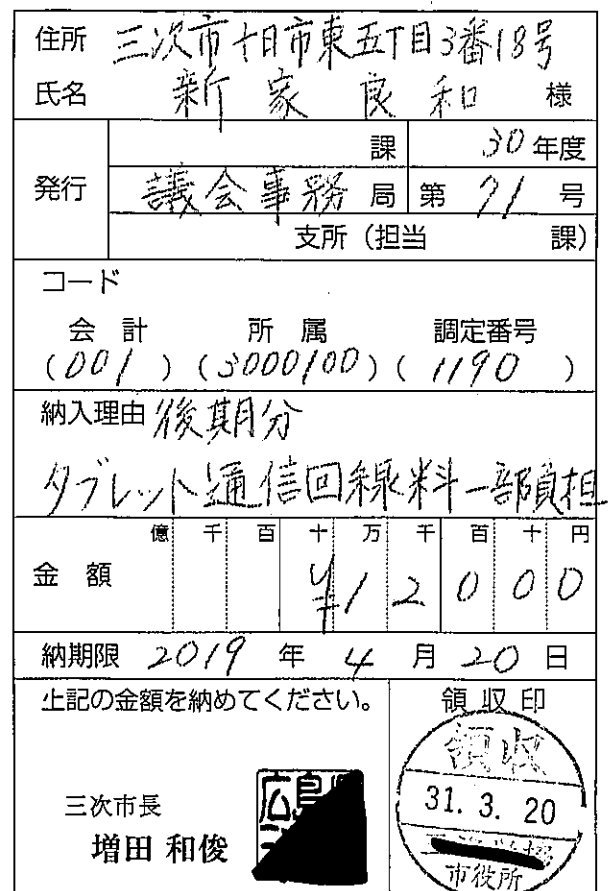 住所 三次市十日市東五丁目3番18号
氏名 新家良和 様
課 30年度
発行 議会事務局 第71号
支所(担当 課)
コード
会計 所属 調定番号
(001)(3000100)(1190)
納入理由 後期分
タブレット通信回線料一部負担
億 千 百 十 万 千 百 十 円
金額 ¥12000
納期限 2019年4月20日
上記の金額を納めてください。 領収印
領収
31.3.20
三次市長
増田 和俊
広島
市役所